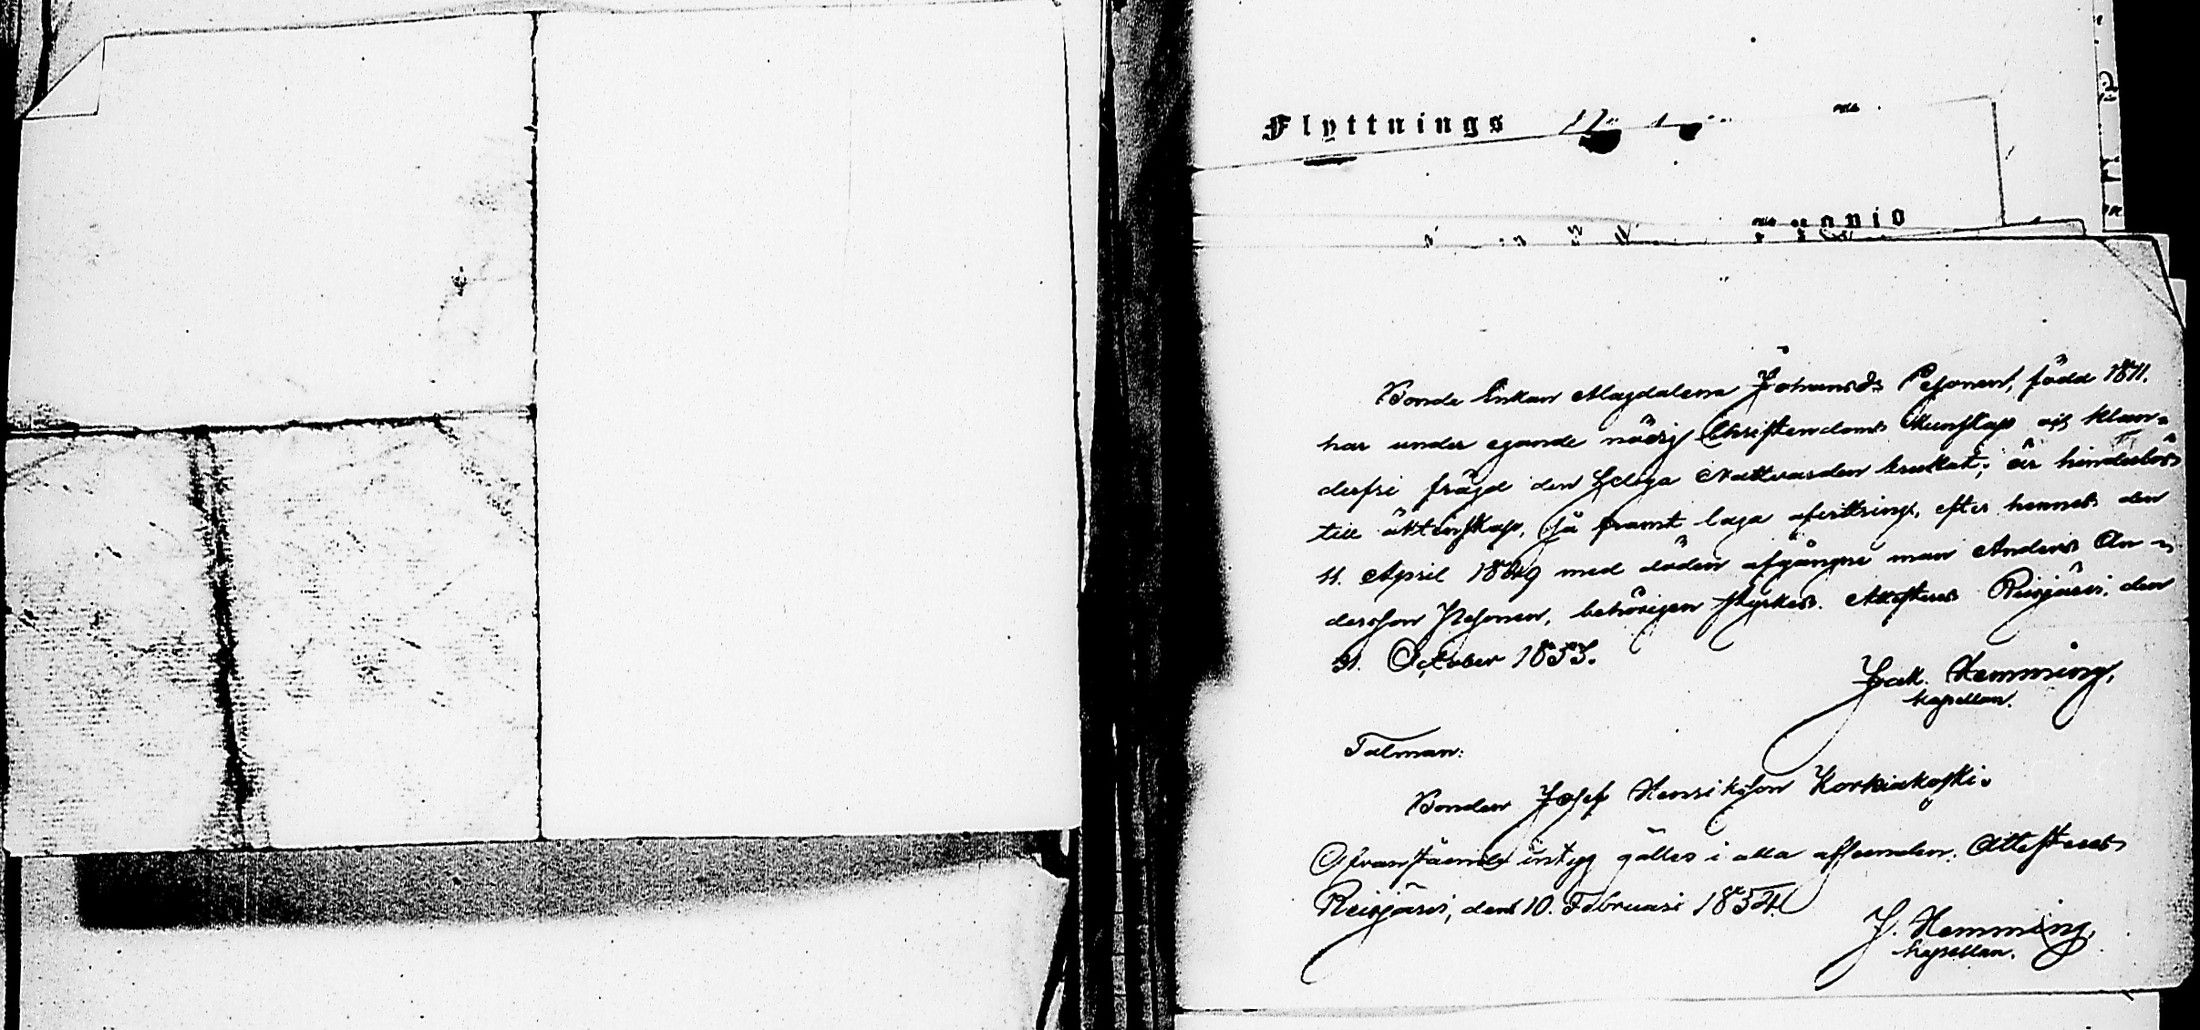 Flyttnings
Bonde Enkan Magdalena Johansd:r Pesonen, född 1811.
har under egande nödig Christendoms Kunskap och klan-
derfri frägd den Heliga Nattvarden brukat; är hinderlös
till äktenskap, så framt laga afvittring, efter hennes den
11. April 1849 med döden afgångne man Anders An-
dersson Pesonen, behörigen styrkes. Attesteras Reisjärvi, den
31. October 1853.
Jak. Hemming,
Kapellan.
Talman:
Bonden Josef Henriksson Korkiakoski.
Ofvanstående intyg gäller i alla afseenden. Attesteras
Reisjärvi, den 10. Februari 1854.
J. Hemming,
Kapellan.